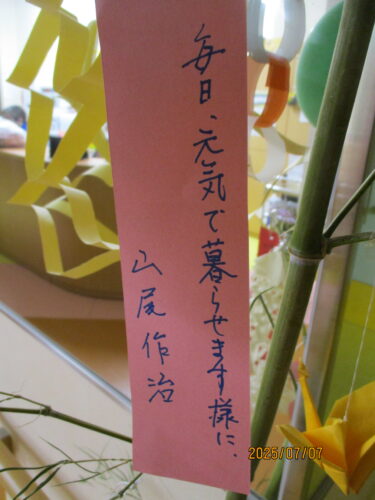 毎日、元気で暮らせます様に、
山尾作治
2025/07/07